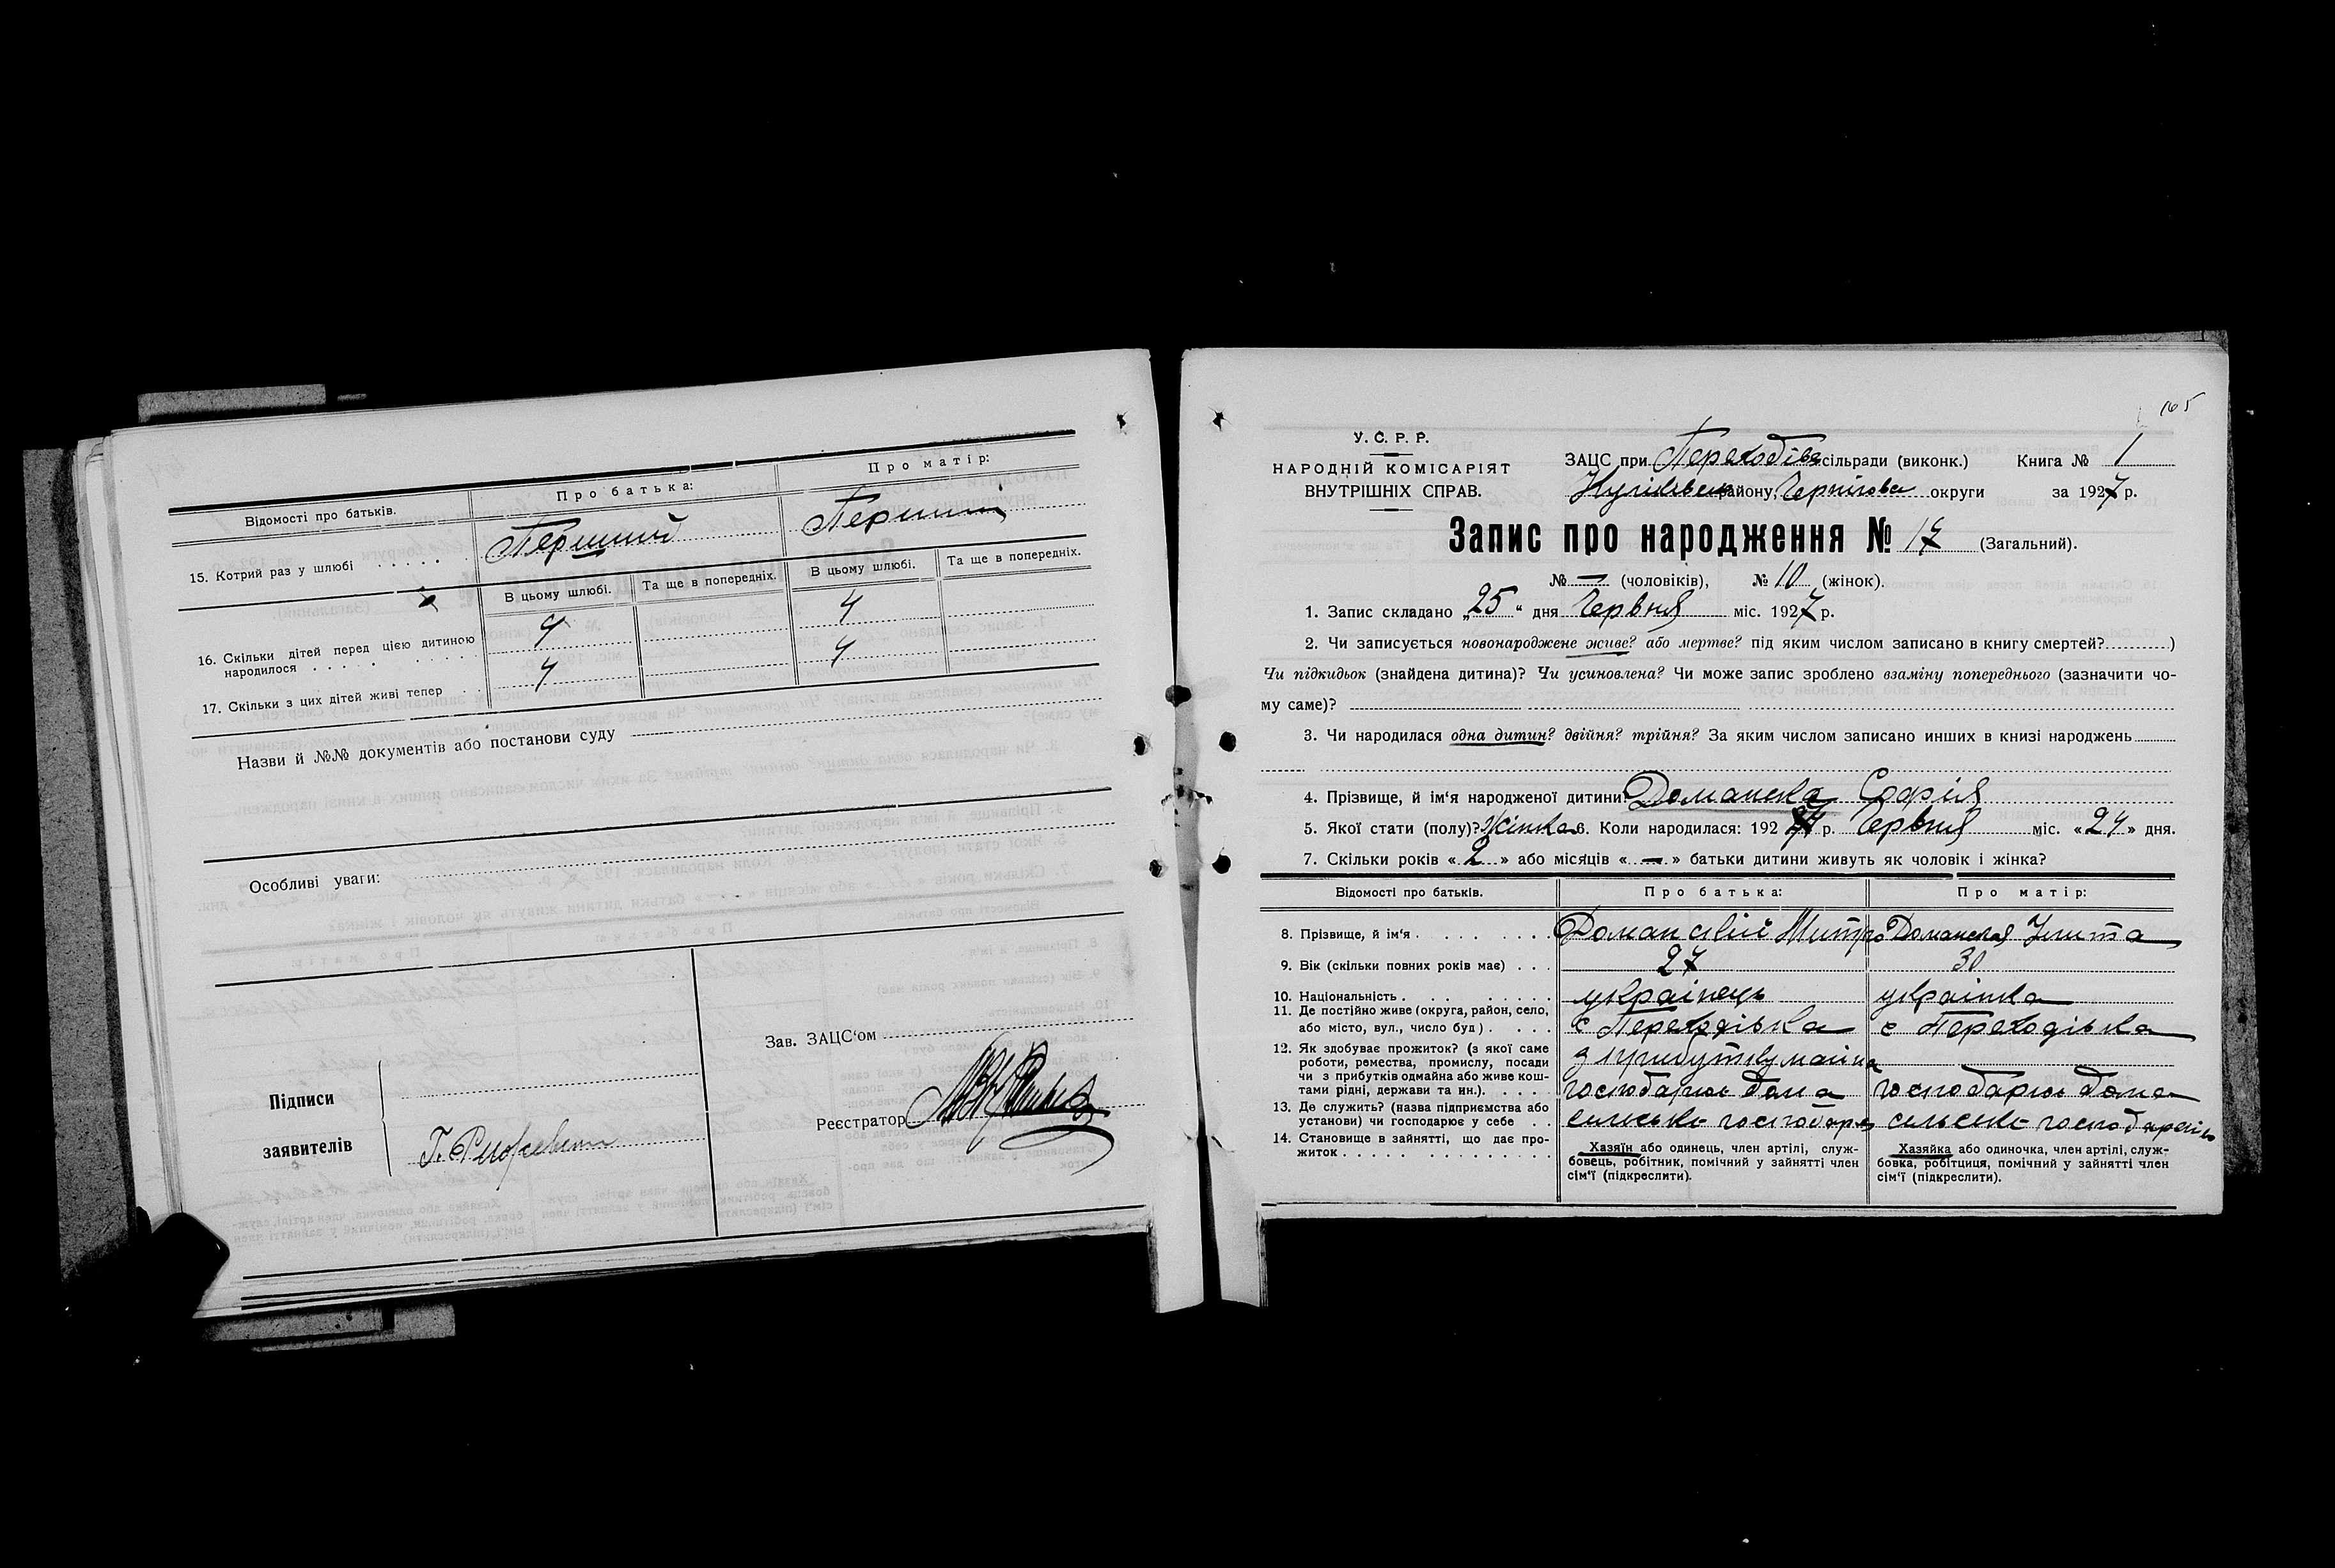 Відомості про батьків.
Про батька:
Про матір:
15. Котрий раз у шлюбі . . . . .
Перший
Перший
В цьому шлюбі.
Та ще в попередніх.
В цьому шлюбі.
Та ще в попередніх.
16. Скільки дітей перед цією дитиною
народилося . . . . .
4
4
17. Скільки з цих дітей живі тепер . .
4
4
Назви й №№ документів або постанови суду
Особливі уваги:
Підписи
заявителів
Зав. ЗАЦС'ом
Реєстратор
165
У. С. Р. Р.
НАРОДНІЙ КОМІСАРІЯТ
ВНУТРІШНІХ СПРАВ.
ЗАЦС при сільради (виконк.) Книга № 1
району, округи за 1927 р.
Запис про народження № 17 (Загальний).
№ — (чоловіків), № 10 (жінок).
1. Запис складано „25" дня Червня міс. 1927 р.
2. Чи записується новонароджене живе? або мертве? під яким числом записано в книгу смертей?)
Чи підкидьок (знайдена дитина)? Чи усиновлена? Чи може запис зроблено взаміну попереднього (зазначити чо-
му саме)?
3. Чи народилася одна дитин? двійня? трійня? За яким числом записано инших в книзі народжень
4. Прізвище, й ім'я народженої дитини? Доманска Софія
5. Якої стати (полу)? Жінка 6. Коли народилася: 192 р. Червня міс. «24» дня.
7. Скільки років «2» або місяців «—» батьки дитини живуть як чоловік і жінка?
Відомості про батьків.
Про батька:
Про матір:
8. Прізвище, й ім'я . . . . . . . .
Доманский Митро
Доманская Улита
9. Вік (скільки повних років має) . . .
27
30
10. Національність . . . . . . . .
українець
українка
11. Де постійно живе (округа, район, село,
або місто, вул., число буд) . . . .
с Переходівка
с Переходівка
12. Як здобуває прожиток? (з якої саме
роботи, ремества, промислу, посади
чи з прибутків одмайна або живе кош-
тами рідні, держави та ин.). . . . .
з прибутку майна
13. Де служить? (назва підприємства або
установи) чи господарює у себе . .
господарює дома
господарює дома
14. Становище в зайнятті, що дає про-
житок . . . . . . . . . . . . . .
Хазяїн або одинець, член артілі, служ-
бовець, робітник, помічний у зайнятті член
сім'ї (підкреслити).
Хазяйка або одиночка, член артілі, служ-
бовка, робітциця, помічний у зайнятті член
сім'ї (підкреслити).